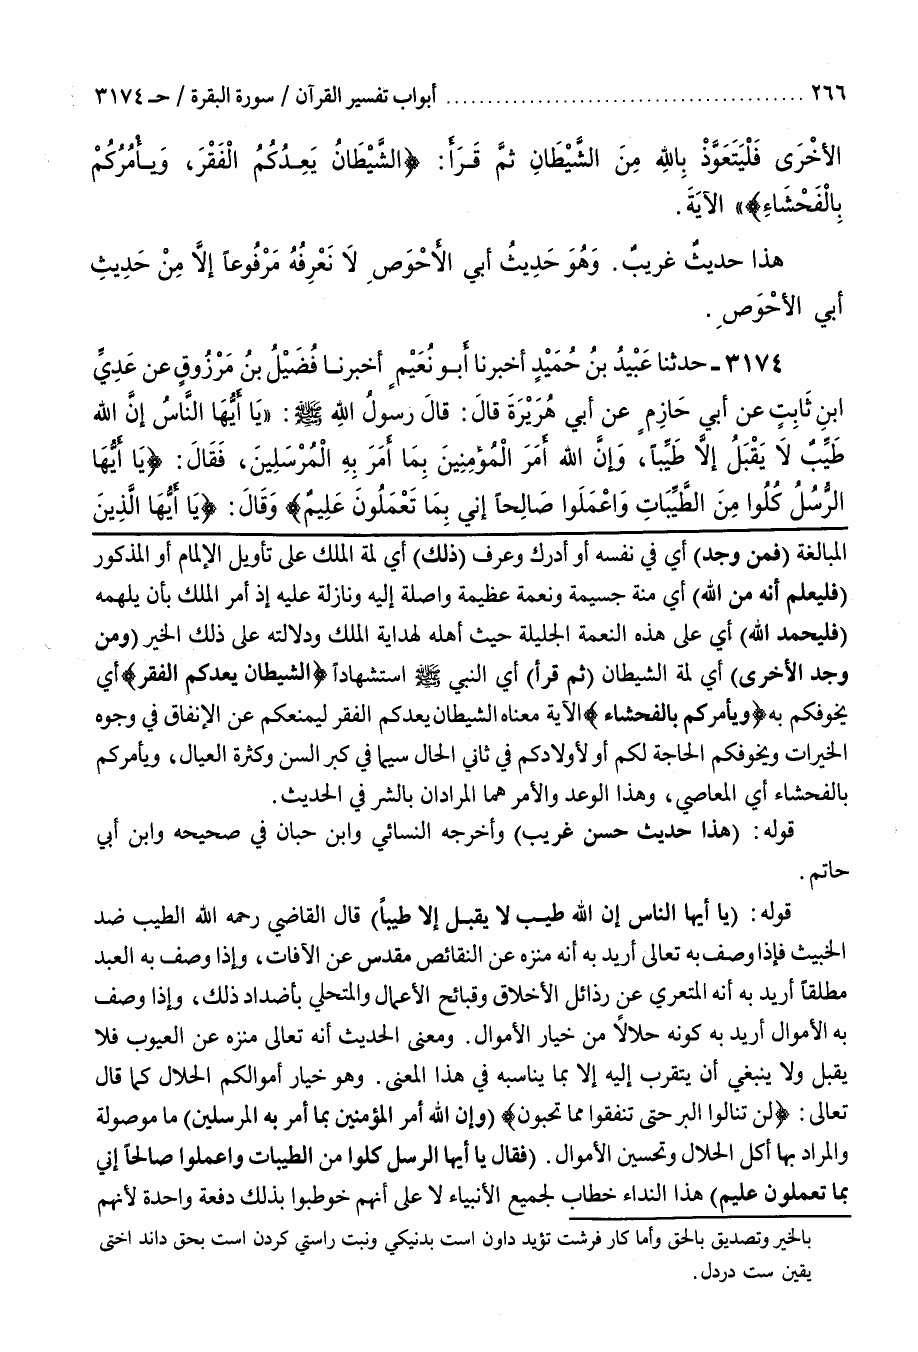 ٢٦٦ ........................................ أبواب تفسير القرآن / سورة البقرة / حـ ٣١٧٤
الأخْرَى فَلْيَتَعَوَّذْ بِاللهِ مِنَ الشَّيْطَانِ ثمَّ قَرَأَ: ﴿الشَّيْطَانُ يَعِدُكُمُ الْفَقْرَ، وَيَأْمُرُكُمْ
بِالْفَحْشَاءِ﴾» الآيَةَ.
هذا حديثٌ غريبٌ. وَهُوَ حَدِيثُ أبي الأَحْوَصِ لَا نَعْرِفُهُ مَرْفُوعاً إلَّا مِنْ حَدِيثِ
أبي الأحْوَصِ.
٣١٧٤ ـ حدثنا عَبْدُ بنُ حُمَيْدٍ أخبرنا أبو نُعَيْمٍ أخبرنا فُضَيْلُ بنُ مَرْزُوقٍ عن عَدِيِّ
ابنِ ثَابِتٍ عن أبي حَازِمٍ عن أبي هُرَيْرَةَ قالَ: قالَ رسولُ اللهِ ﷺ: «يَا أَيُّهَا النَّاسُ إنَّ الله
طَيِّبٌ لَا يَقْبَلُ إلَّا طَيِّباً، وَإنَّ الله أَمَرَ الْمُؤْمِنِينَ بِمَا أَمَرَ بِهِ الْمُرْسَلِينَ، فَقَالَ: ﴿يَا أَيُّهَا
الرُّسُلُ كُلُوا مِنَ الطَّيِّبَاتِ وَاعْمَلُوا صَالِحاً إني بِمَا تَعْمَلُونَ عَلِيمٌ﴾ وَقَالَ: ﴿يَا أَيُّهَا الَّذِينَ
المبالغة (فمن وجد) أي في نفسه أو أدرك وعرف (ذلك) أي لمة الملك على تأويل الإلمام أو المذكور
(فليعلم أنه من الله) أي منة جسيمة ونعمة عظيمة واصلة إليه ونازلة عليه إذ أمر الملك بأن يلهمه
(فليحمد الله) أي على هذه النعمة الجليلة حيث أهله لهداية الملك ودلالته على ذلك الخير (ومن
وجد الأخرى) أي لمة الشيطان (ثم قرأ) أي النبي ﷺ استشهاداً ﴿الشيطان يعدكم الفقر﴾ أي
يخوفكم به ﴿ويأمركم بالفحشاء﴾ الآية معناه الشيطان يعدكم الفقر ليمنعكم عن الإنفاق في وجوه
الخيرات ويخوفكم الحاجة لكم أو لأولادكم في ثاني الحال سيما في كبر السن وكثرة العيال، ويأمركم
بالفحشاء أي المعاصي، وهذا الوعد والأمر هما المرادان بالشر في الحديث.
قوله: (هذا حديث حسن غريب) وأخرجه النسائي وابن حبان في صحيحه وابن أبي
حاتم.
قوله: (يا أيها الناس إن الله طيب لا يقبل إلا طيباً) قال القاضي رحمه الله الطيب ضد
الخبيث فإذا وصف به تعالى أريد به أنه منزه عن النقائص مقدس عن الآفات، وإذا وصف به العبد
مطلقاً أريد به أنه المتعري عن رذائل الأخلاق وقبائح الأعمال والمتحلي بأضداد ذلك، وإذا وصف
به الأموال أريد به كونه حلالاً من خيار الأموال. ومعنى الحديث أنه تعالى منزه عن العيوب فلا
يقبل ولا ينبغي أن يتقرب إليه إلا بما يناسبه في هذا المعنى. وهو خيار أموالكم الحلال كما قال
تعالى: ﴿لن تنالوا البر حتى تنفقوا مما تحبون﴾ (وإن الله أمر المؤمنين بما أمر به المرسلين) ما موصولة
والمراد بها أكل الحلال وتحسين الأموال. (فقال يا أيها الرسل كلوا من الطيبات واعملوا صالحاً إني
بما تعملون عليم) هذا النداء خطاب لجميع الأنبياء لا على أنهم خوطبوا بذلك دفعة واحدة لأنهم
بالخير وتصديق بالحق وأما كار فرشت تؤيد داون است بدنيكي ونبت راستي كردن است بحق داند اختى
يقين ست دردل.